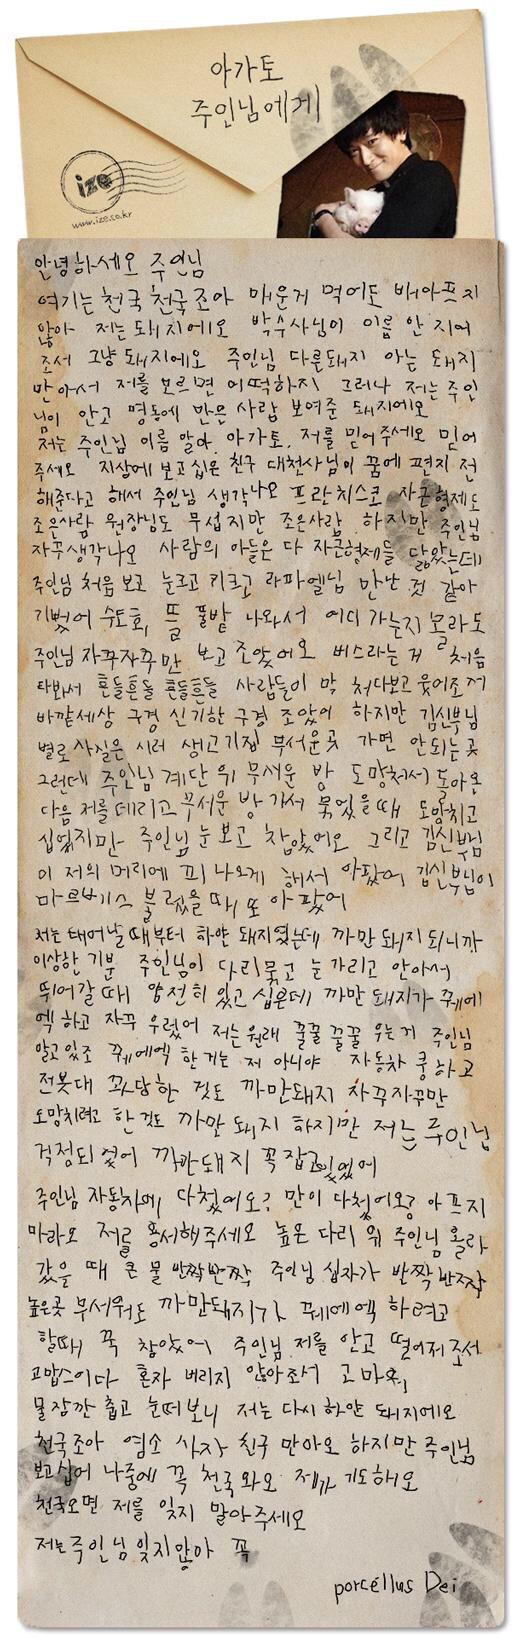 아가토
주인님에게
ize
www.ize.co.kr
안녕하세오 주인님
여기는 천국 천국조아 매운거 먹어도 배아프지
않아 저는 돼지에오 박수사님이 이름 안 지어
조서 그냥 돼지에오 주인님 다른돼지 아는 돼지
만아서 저를 모르면 어떡하지 그러나 저는 주인
님이 안고 명동에 만은 사람 보여준 돼지에오
저는 주인님 이름 알아. 아가토. 저를 믿어주세오 믿어
주세오 지상에 보고십은 친구 대천사님이 꿈에 편지 전
해준다고 해서 주인님 생각나오 프란치스코 자근형제도
조은사람 원장님도 무섭지만 조은사람 하지만 주인님
자꾸생각나오 사람의 아들은 다 자근형제를 닮았는데
주인님 처음 보고 눈크고 키크고 라파엘님 만난 것 같아
기뻤어 수도회, 뜰 풀밭 나와서 어디 가는지 모라도
주인님 자꾸자꾸만 보고 조았어오 버스라는 거 처음
타봐서 흔들흔들 흔들흔들 사람들이 막 처다보고 웃어조거
바깥세상 구경 신기한 구경 조았어 하지만 김신부님
별로 사실은 시러 생고기집 무서운곳 가면 안되는곳
그런데 주인님 계단 위 무서운 방 도망처서 돌아온
다음 저를 데리고 무서운 방 가서 묶었을때 도망치고
십었지만 주인님 눈보고 참았어오 그리고 김신부님
이 저의 머리에 피 나오게 해서 아팠어 김신부님이
마르바스 불렀을 때, 또 아팠어
저는 태어날 때부터 하얀 돼지였는데 까만 돼지 되니까
이상한 기분 주인님이 다리묶고 눈 가리고 안아서
뛰어갈 때 얌전히 있고 십은데 까만 돼지가 꾸에
엑 하고 자꾸 우렀어 저는 원래 꿀꿀 꿀꿀 우는거 주인님
알고있조 꾸에엑 한거는 저 아니야 자동차 쿵하고
전봇대 꽈당한 것도 까만돼지 자꾸자꾸만
도망치려고 한것도 까만 돼지 하지만 저는 주인님
걱정되었어 까만돼지 꼭 잡고있었어
주인님 자동차에 다첬어오? 만이 다첬어오? 아프지
마라오 저를 용서해주세오 높은 다리 위 주인님 올라
갔을 때 큰 물 반짝반짝 주인님 십자가 반짝반짝
높은곳 무서워도 까만돼지가 꾸에에엑 하려고
할때 꼭 참았어 주인님 저를 안고 떨어저 조서
고맙스이다 혼자 버리지 않아조서 고마워
물 잠깐 춥고 눈떠보니 저는 다시 하얀 돼지에오
천국조아 염소 사자 친구 만아오 하지만 주인님
보고십어 나중에 꼭 천국와오 제가 기도해오
천국오면 저를 잊지 말아주세오
저는 주인님 잊지않아 꼭
porcéllus Dei